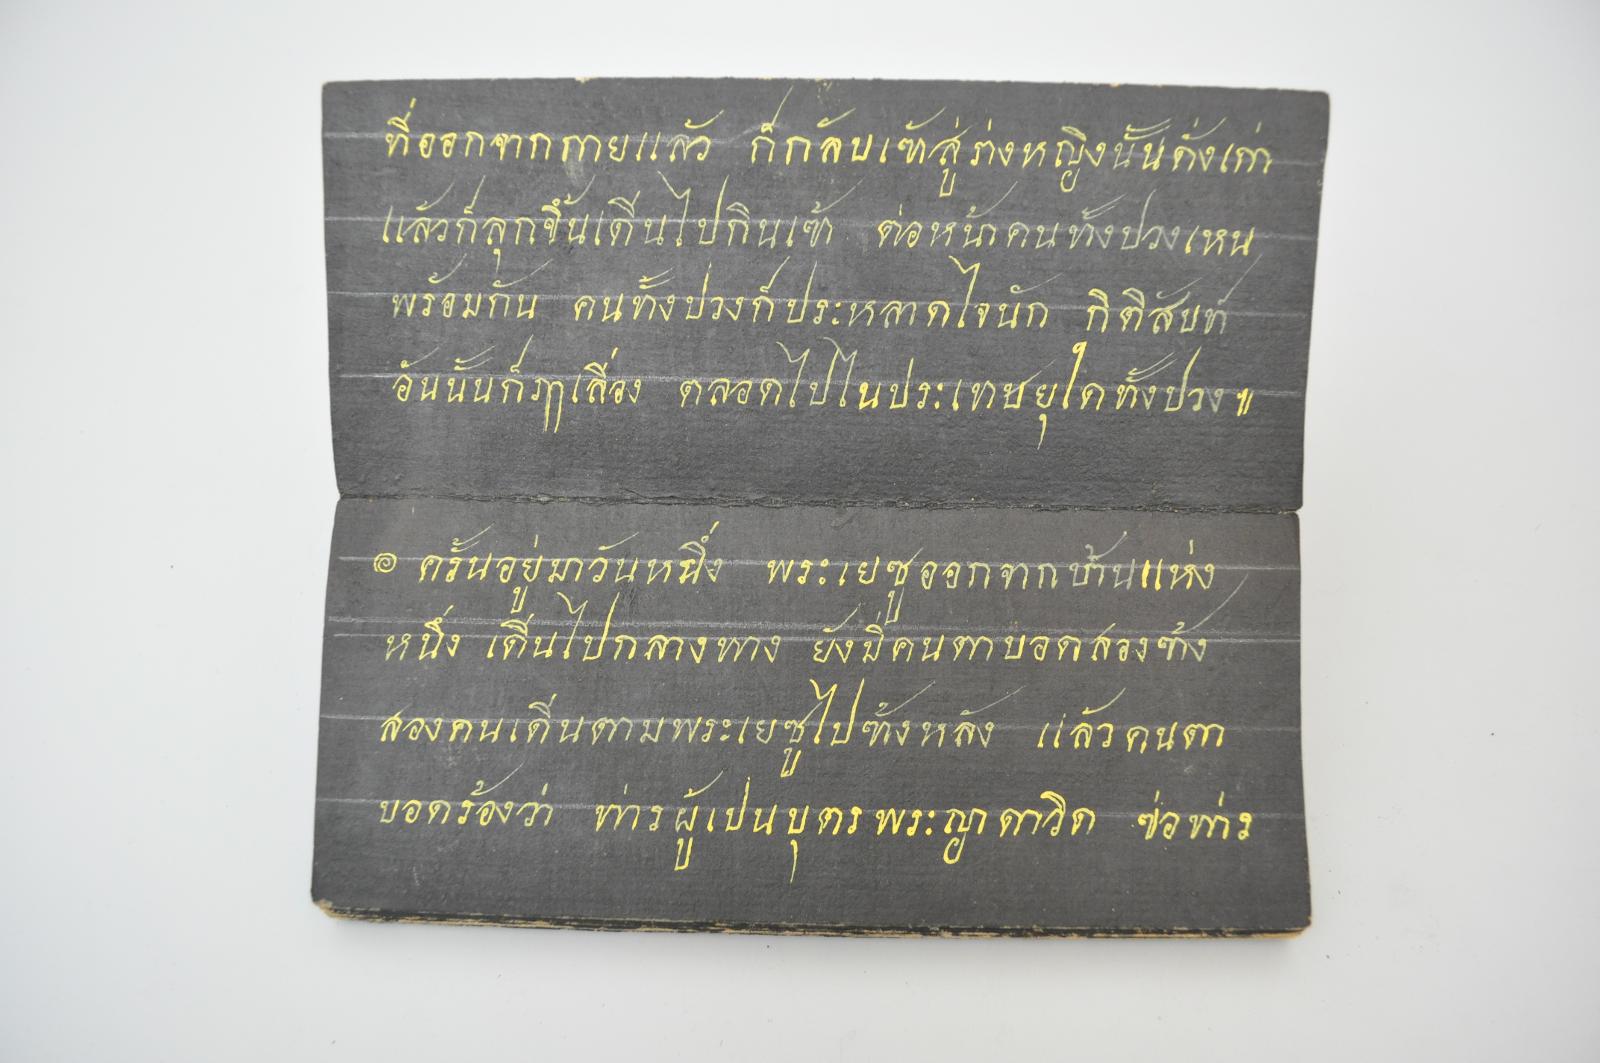 ที่ออกจากกายแล้ว ก็กลับเข้าสู่ร่างหญิงนั้นดั่งเก่า
แล้วก็ลุกขึ้นเดีนไปกินเข้า ต่อหน้าคนทั้งปวงเหน
พร้อมกัน คนทั้งปวงก็ประหลาดไจนัก กิติสับท์
อันนั้นก็ฦๅเลื่อง ตลอดไปไนประเทษยุโดทั้งปวง ๚
๏ ครั้นอยู่มาวันหนึ่ง พระเยซูออกจากบ้านแห่ง
หนึ่ง เดีนไปกลางทาง ยังมีคนตาบอดสองข้าง
สองคนเดีนตามพระเยซูไปข้างหลัง แล้วคนตา
บอดร้องว่า ท่านผู้เปนบุตรพระญาดาวิด ขอท่าน